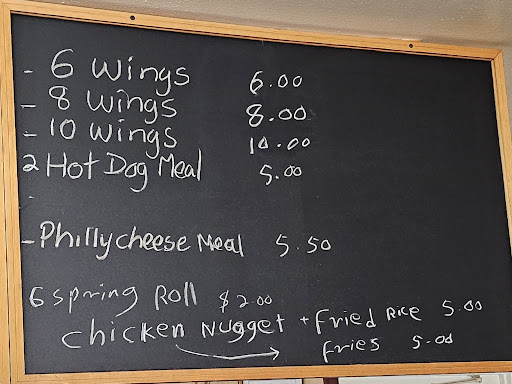 - 6 Wings 6.00
- 8 Wings 8.00
- 10 Wings 10.00
2 Hot Dog Meal 5.00
-
- Phillycheese Meal 5.50
6 spring Roll $2.00
chicken Nugget + Fried Rice 5.00
fries 5.00